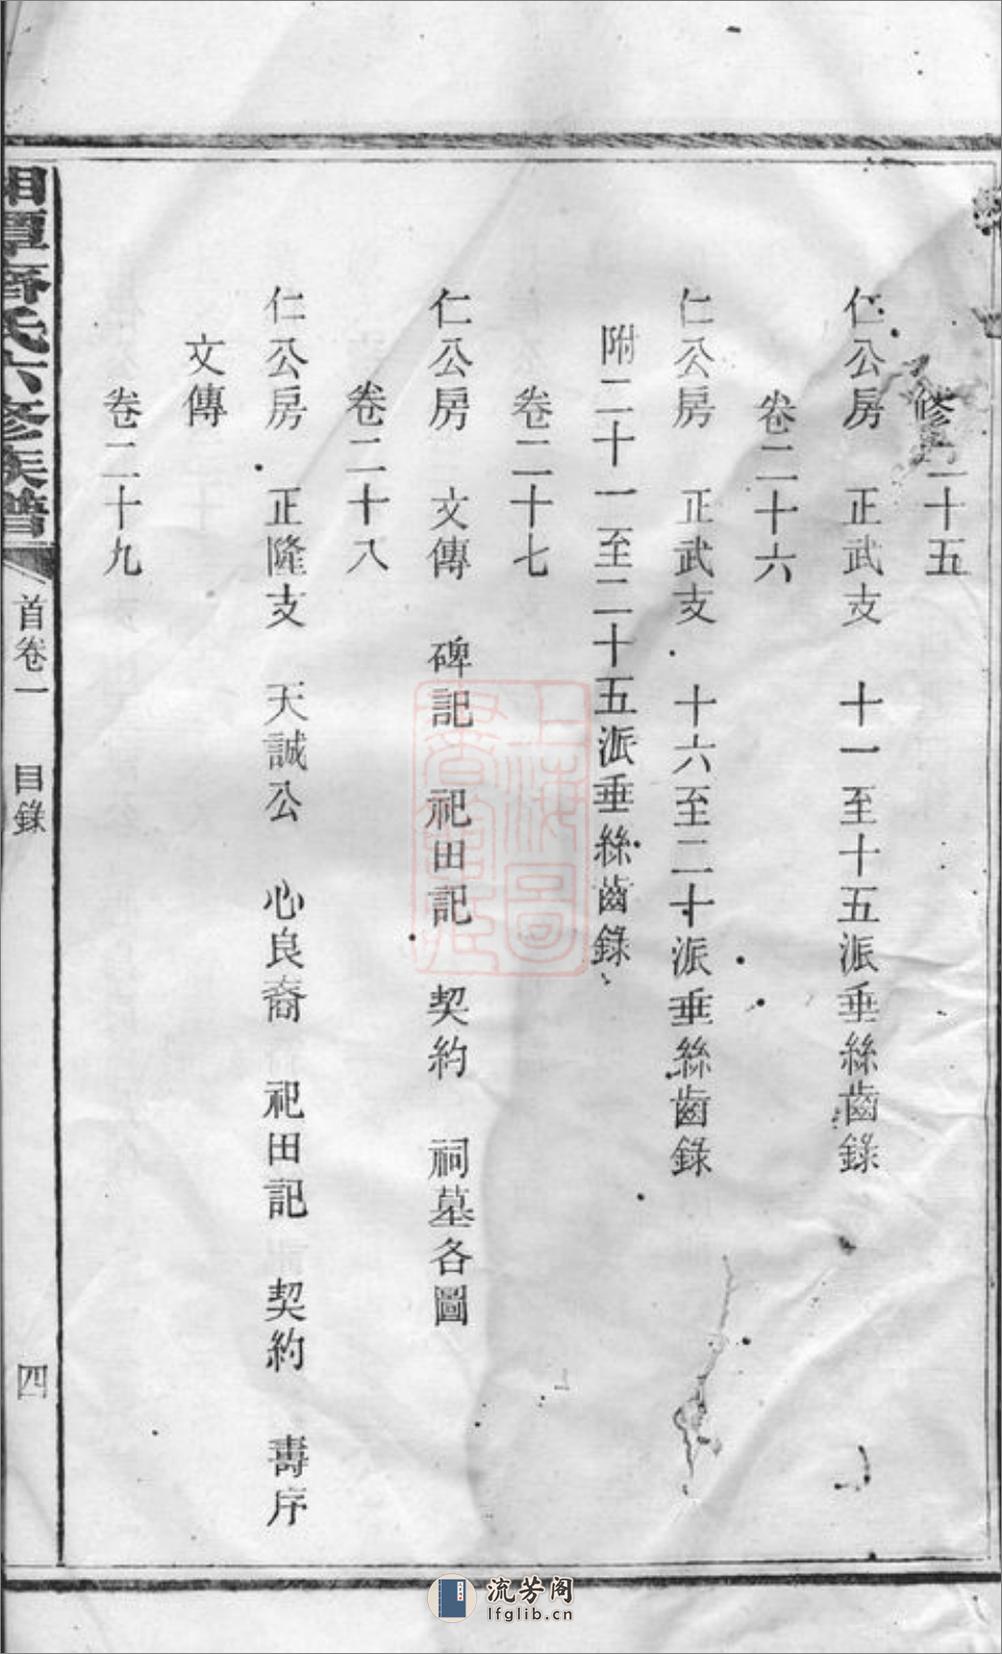 修二十五
仁公房　正武支　十一至十五派垂絲齒錄
卷二十六
仁公房　正武支　十六至二十派垂絲齒錄
附二十一至二十五派垂絲齒錄
卷二十七
仁公房　文傳　碑記　祀田記　契約　祠墓各圖
卷二十八
仁公房　正隆支　天誠公　心良裔　祀田記　契約　壽序
文傳
卷二十九
湘潭齊氏六修族譜　首卷一　目錄　四
上海圖書館藏
流芳阁
lfglib.cn